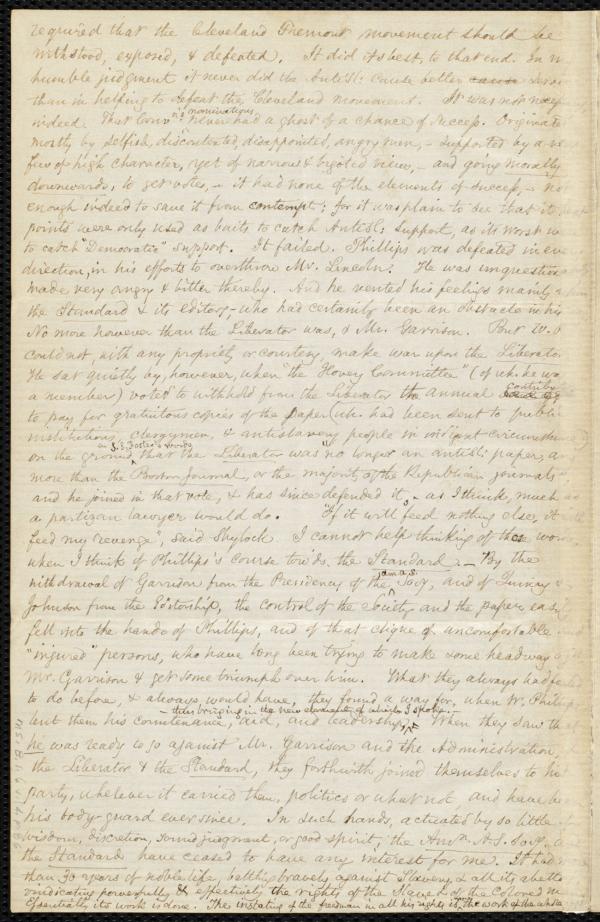 required that the Cleveland Fremont movement should be
withstood, exposed, & defeated. It did its best, to that end. In
humble judgment it never did the Antisl: cause better
than in helping to defeat the Cleveland movement. It was not
indeed. That Conv'n's nominations never had a ghost of a chance of success.
mostly by selfish, discontented, disappointed, angry men, - supported by a
few of high character, yet of narrow & bigoted view, - and going morally
downwards, to get votes, - it had none of the elements of success, -
enough indeed to save it from contempt; for it was plain to see that its
points were only used as baits to catch Antisl: support, as its worst
to catch "Democratic" support. It failed. Phillips was defeated in
direction, in his efforts to overthrow Mr. Lincoln. He was
made very angry & bitter thereby. And he vented his feelings mainly
the Standard & its editors, - who had certainly been an obstacle in his
No more however than the Liberator was, & Mr. Garrison. But W.
could not, with any propriety or courtesy, make war upon the
He sat quietly by, however, when "the Hovey Committee" (of wh. he
a member) voted to withhold from the Liberator the annual
to pay for gratuitous copies of the paper (wh. had been sent to
institutions, clergymen, & antislavery people in indigent
on the ground, S. S. Foster's words, that the Liberator was "no longer an antisl: paper,
more than the Boston Journal, or the majority of the Republican journals"
and he joined in that vote, & has since defended it, - as I think, much
a partizan lawyer would do. "If it will feed nothing else, it
feed my revenge", said Shylock. I cannot help thinking of
when I think of Phillips's course tow'ds. the Standard. - By the
withdrawal of Garrison from the Presidency of the Am. A. S. Soc'y, and of Quincy
Johnson from the Editorship, the control of the Society and the paper,
fell into the hands of Phillips, and of that clique of uncomfortable
"injured" persons, who have long been trying to make some headway
Mr. Garrison & get some triumph over him. What they always had
to do before, & always would have, they found a way for, when W.
- thus bringing in the new element of which I spoke, -
lent them his countenance, aid, and leadership. When they saw
he was ready to go against Mr. Garrison and the Administration,
the Liberator & the Standard, they forthwith joined themselves to his
party, wherever it carried them, politics or what not, and have
his body-guard ever since. In such hands, actuated by so little
wisdom, discretion, sound judgment, or good spirit, the Am'n. A. S. Soc'y.
the Standard have ceased to have any interest for me. It had
than 30 years of noble life, battling bravely against Slavery, & all its
vindicating powerfully & effectively the rights of the Slave & the Colored
Essentially, its work is done. The instating of the freedman in all his rights is the work of the whole